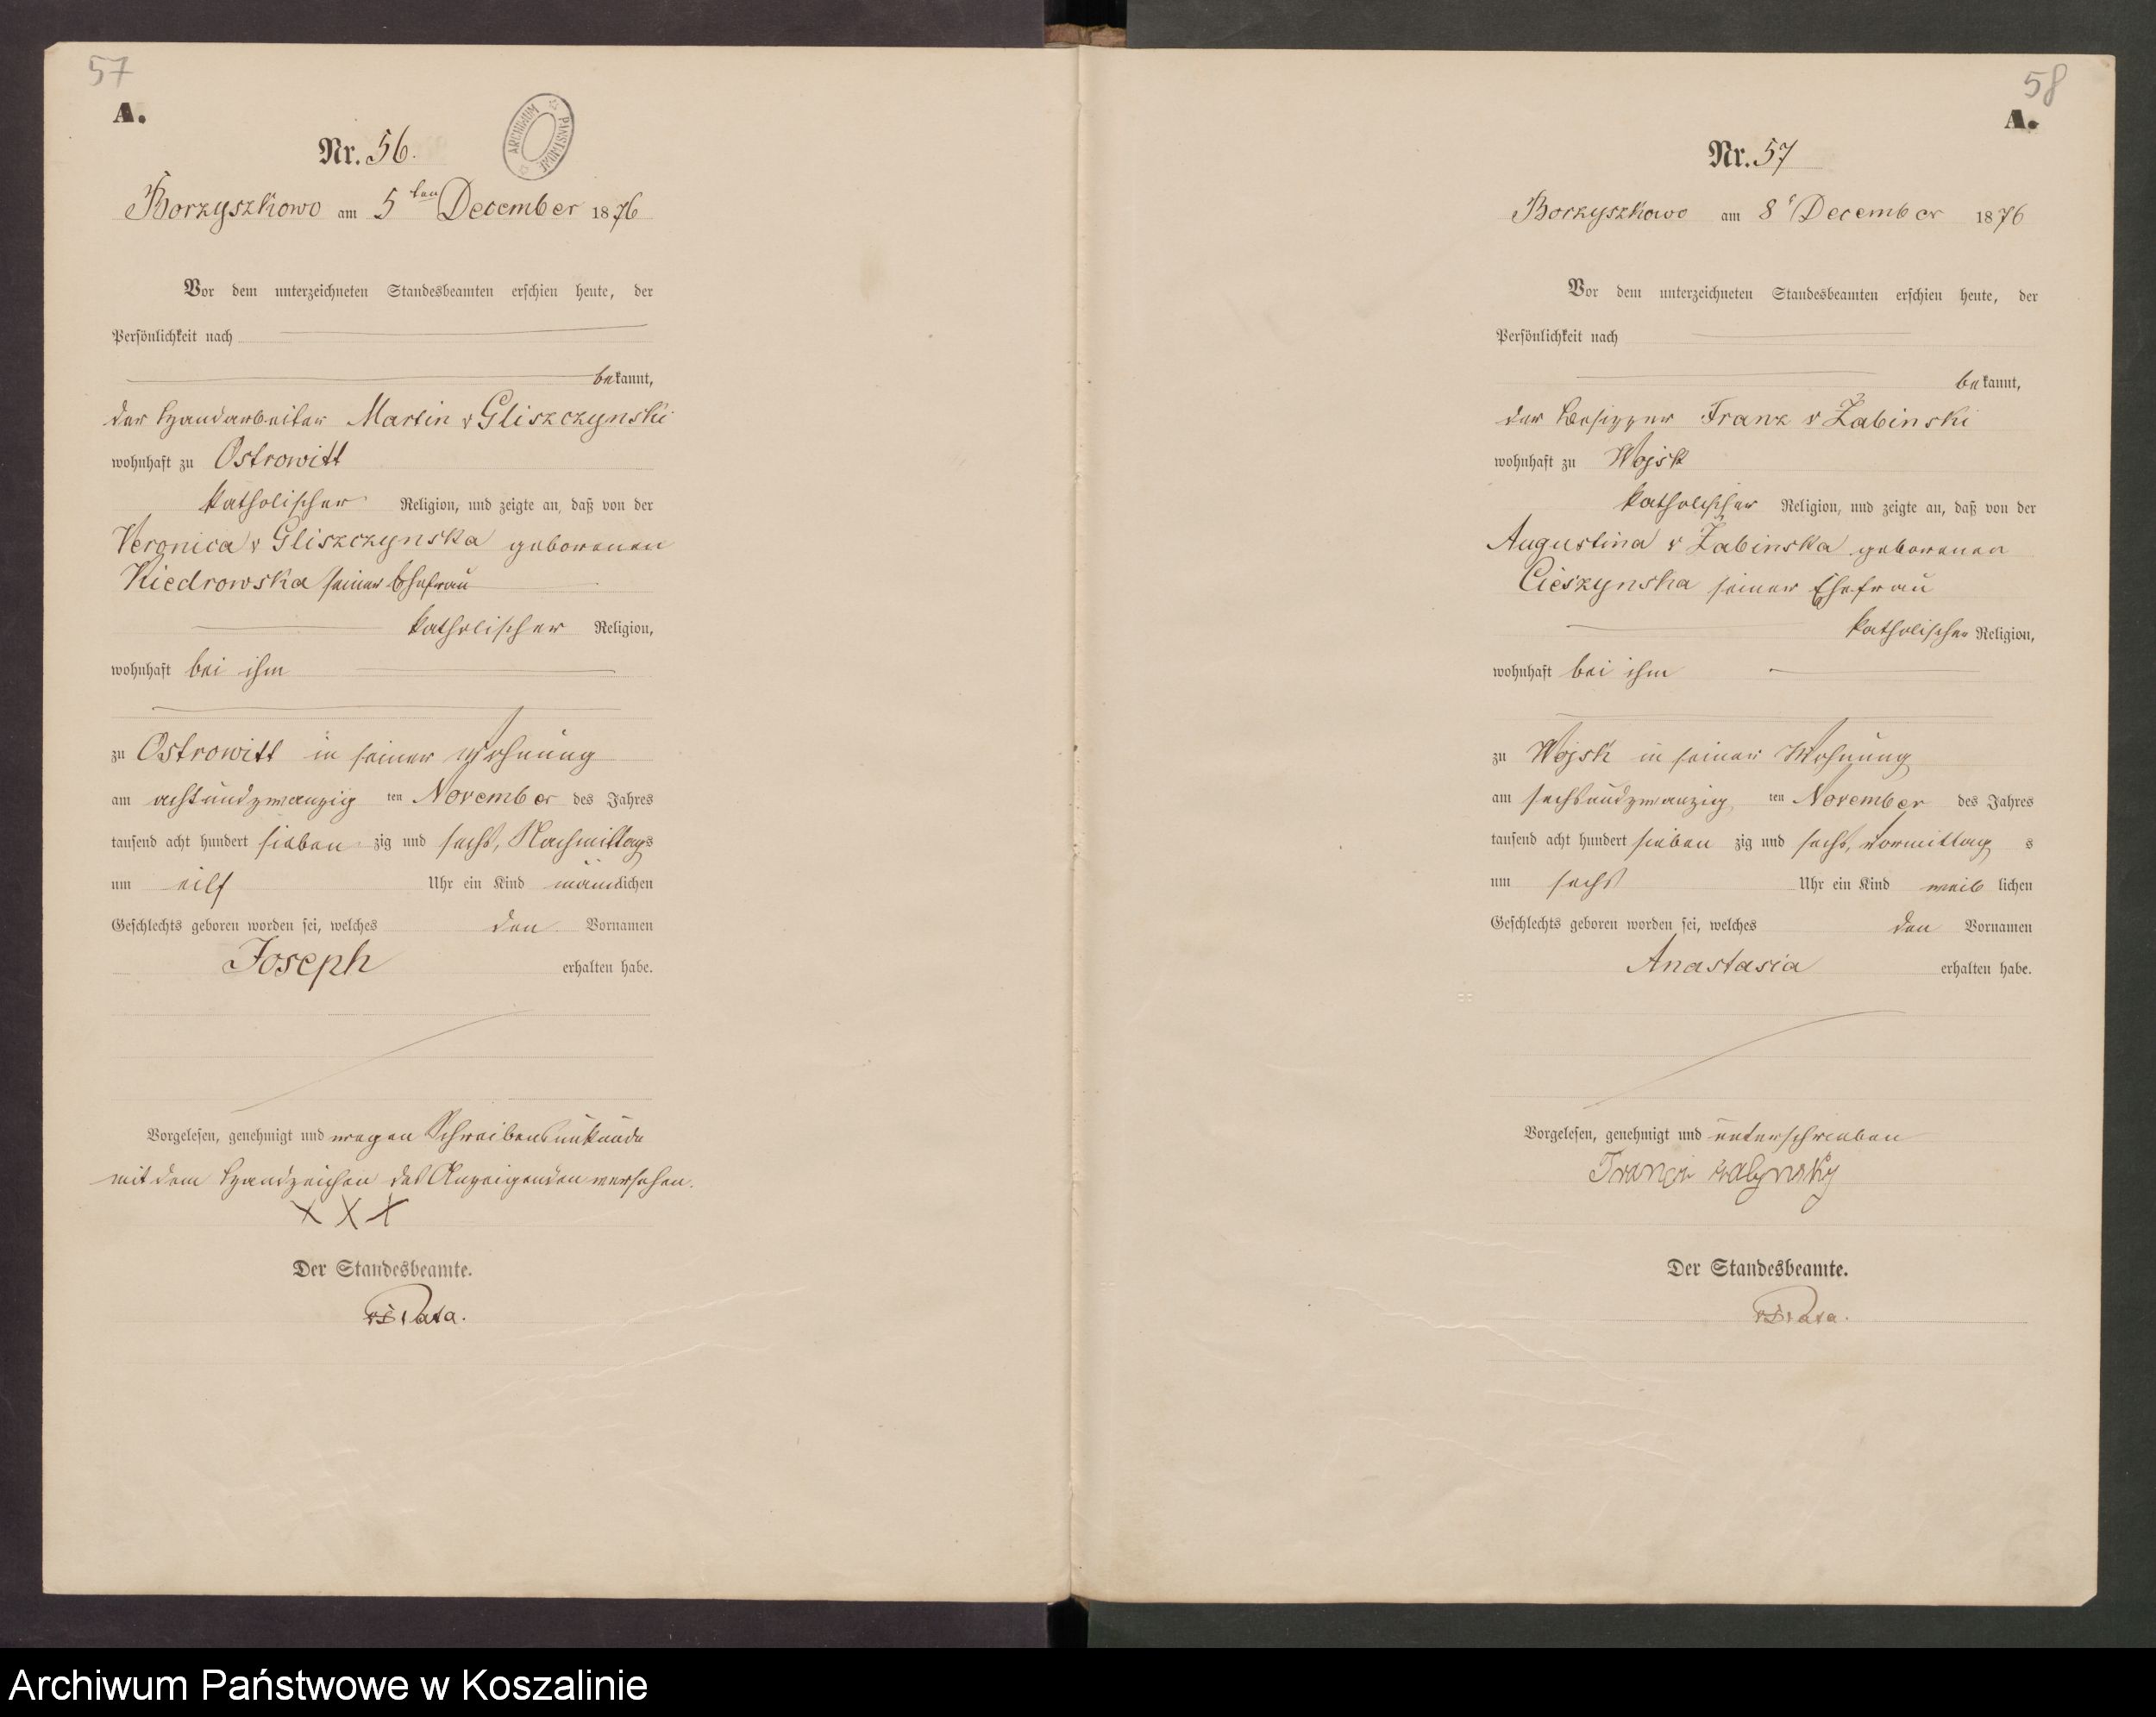 57
A.
ARCHIWUM PAŃSTWOWE
Nr. 56.
Borzyszkowo am 5ten December 1876
Vor dem unterzeichneten Standesbeamten erschien heute, der
Persönlichkeit nach
bekannt,
der Handarbeiter Martin v Gliszczynski
wohnhaft zu Ostrowitt
katholischer Religion, und zeigte an, daß von der
Veronica v Gliszczynska geborenen
Kiedrowska seiner Ehefrau
katholischer Religion,
wohnhaft bei ihm
zu Ostrowitt in seiner Wohnung
am achtundzwanzig ten November des Jahres
tausend acht hundert sieben zig und sechs, Nachmittags
um eilf Uhr ein Kind männlichen
Geschlechts geboren worden sei, welches den Vornamen
Joseph erhalten habe.
Vorgelesen, genehmigt und wegen Schreibensunkunde
mit dem Handzeichen des Anzeigenden versehen.
X X X
Der Standesbeamte.
58
A.
Nr. 57
Borzyszkowo am 8t December 1876
Vor dem unterzeichneten Standesbeamten erschien heute, der
Persönlichkeit nach
bekannt,
der Besitzer Franz v Żabinski
wohnhaft zu Wojsk
katholischer Religion, und zeigte an, daß von der
Augustina v Żabinska geborenen
Cieszynska seiner Ehefrau
katholischer Religion,
wohnhaft bei ihm
zu Wojsk in seiner Wohnung
am sechsundzwanzig ten November des Jahres
tausend acht hundert sieben zig und sechs, Vormittag s
um sechs Uhr ein Kind weib lichen
Geschlechts geboren worden sei, welches den Vornamen
Anastasia erhalten habe.
Vorgelesen, genehmigt und unterschrieben
Der Standesbeamte.
Archiwum Państwowe w Koszalinie